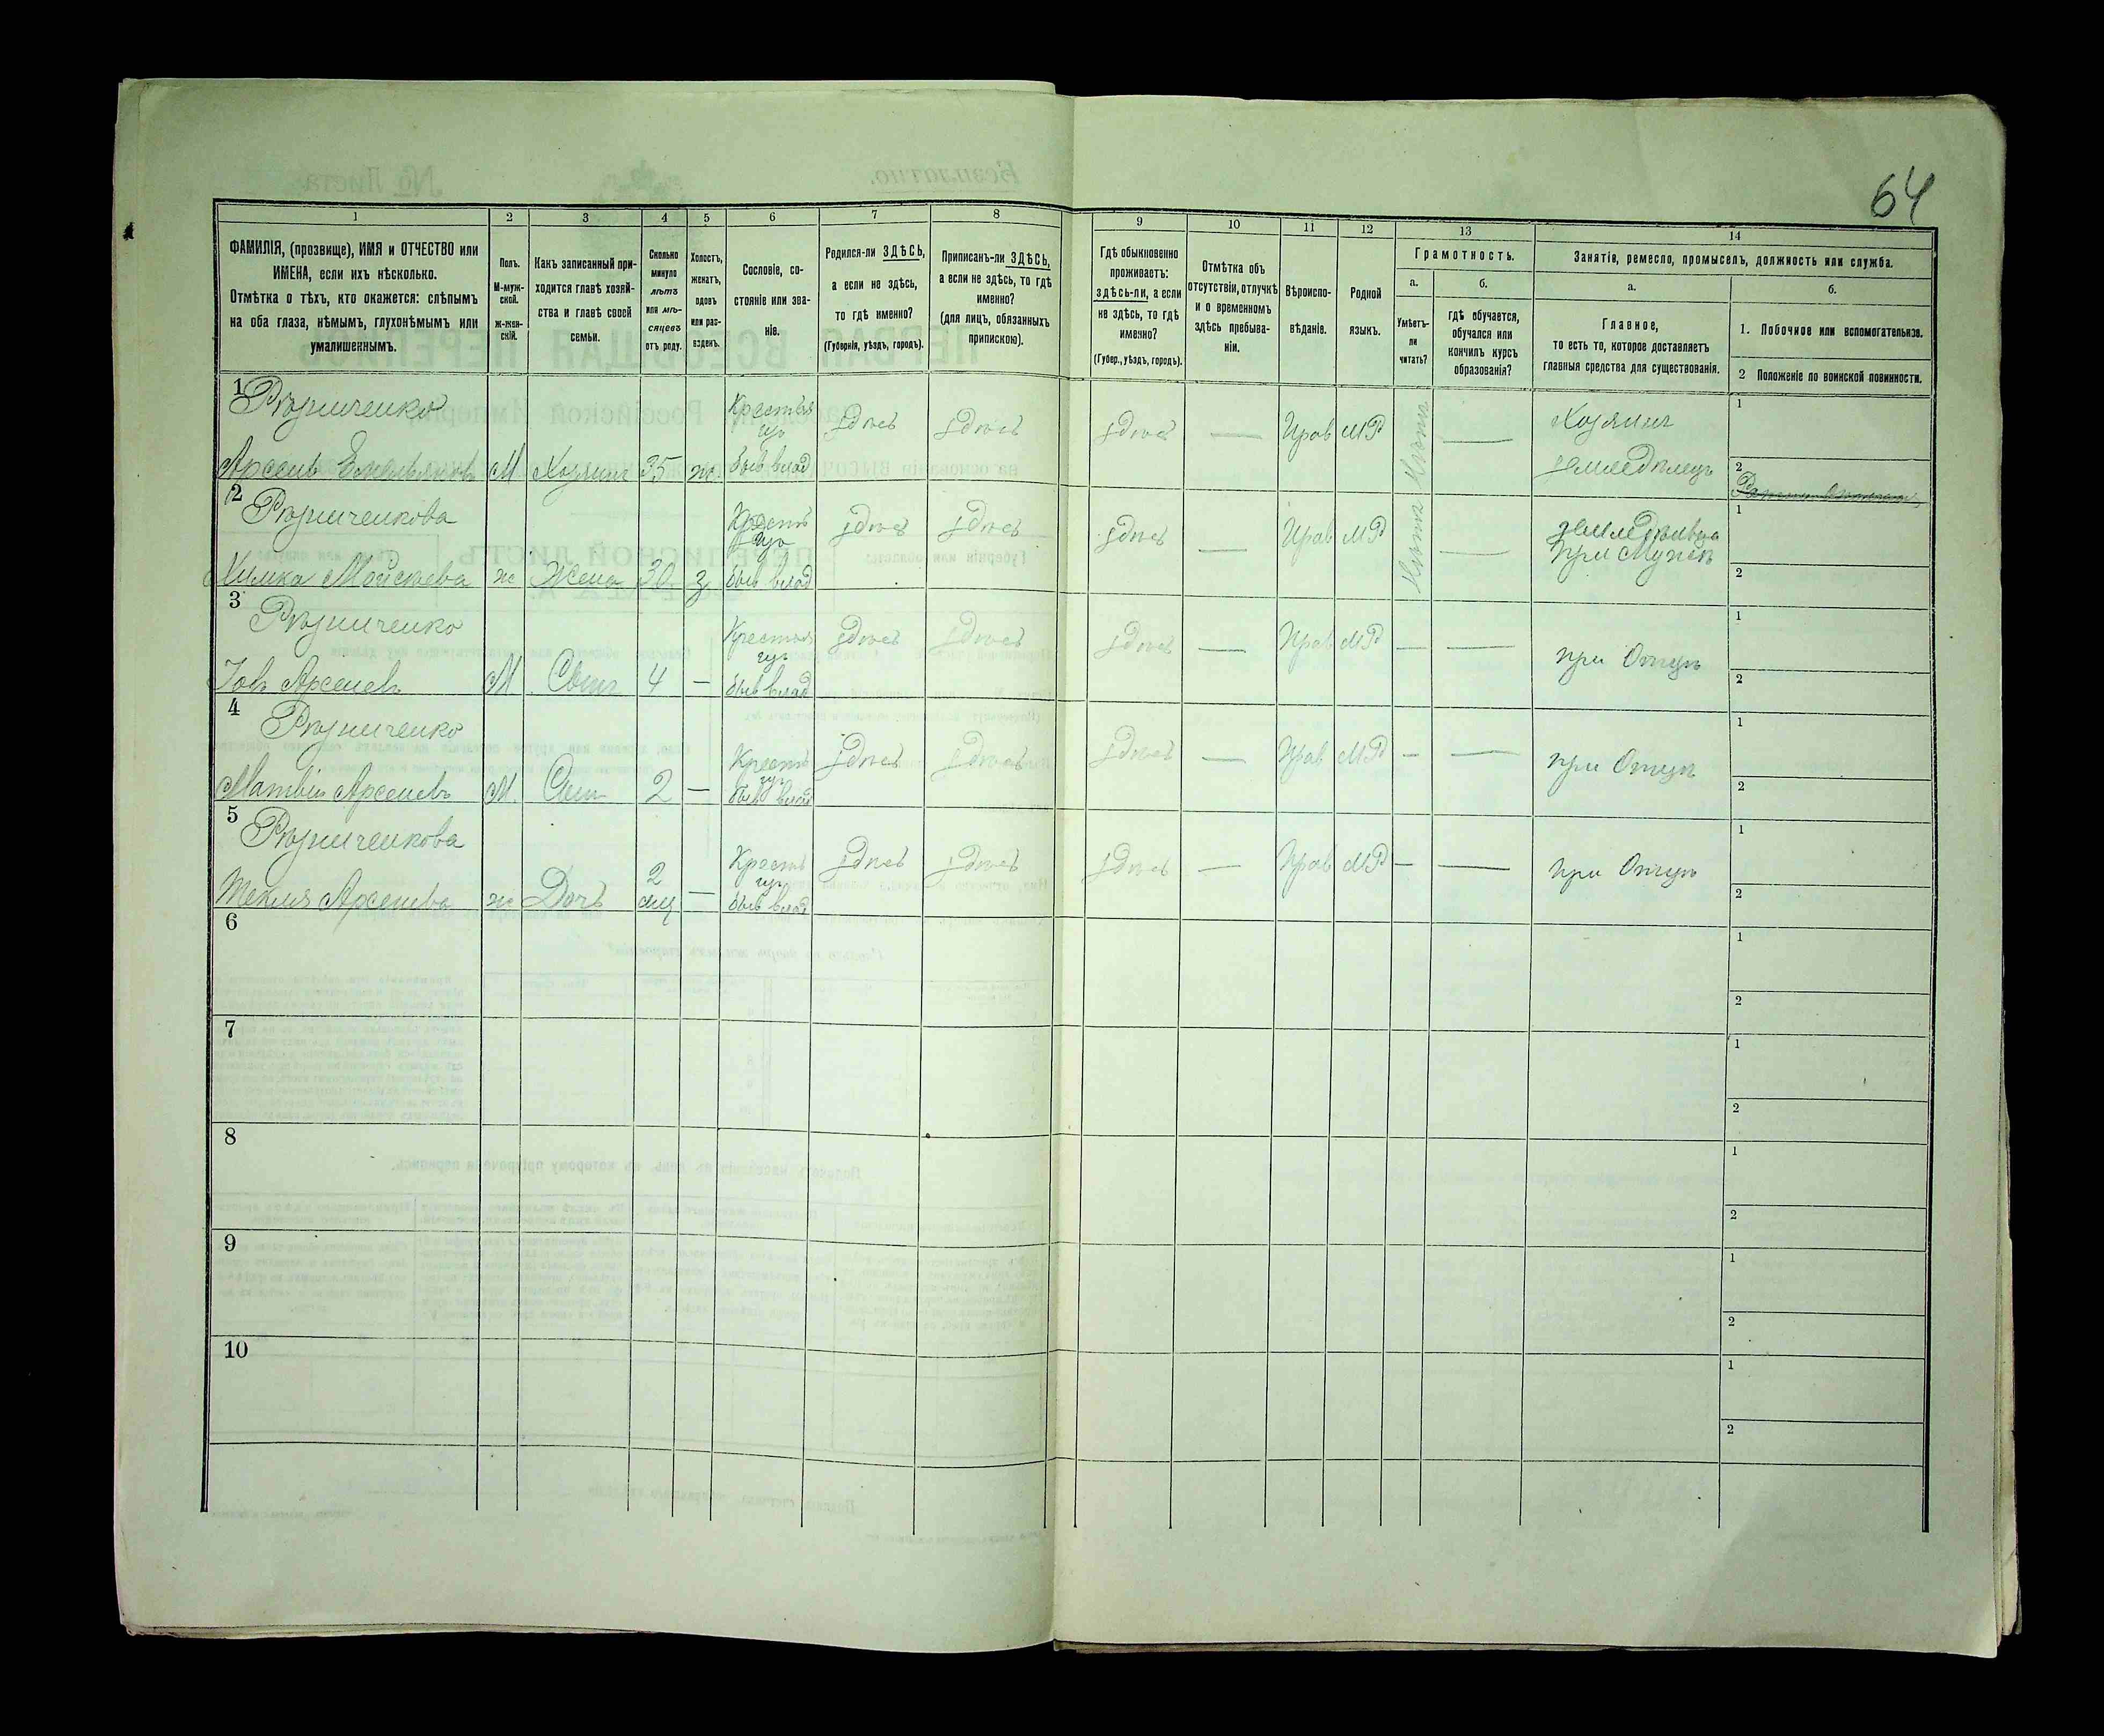 64
1 2 3 4 5 6 7 8 9 10 11 12 13 14
ФАМИЛІЯ, (прозвище), ИМЯ и ОТЧЕСТВО или
ИМЕНА, если ихъ нѣсколько.
Отмѣтка о тѣхъ, кто окажется: слѣпымъ
на оба глаза, нѣмымъ, глухонѣмымъ или
умалишеннымъ.
Полъ.
М-муж-
ской.
Ж-жен-
скій.
Какъ записанный при-
ходится главѣ хозяй-
ства и главѣ своей
семьи.
Сколько
минуло
лѣтъ
или мѣ-
сяцевъ
отъ роду.
Холостъ,
женатъ,
вдовъ
или раз-
веденъ.
Сословіе, со-
стояніе или зва-
ніе.
Родился-ли ЗДѢСЬ,
а если не здѣсь,
то гдѣ именно?
(Губернія, уѣздъ, городъ).
Приписанъ-ли ЗДѢСЬ,
а если не здѣсь, то гдѣ
именно?
(для лицъ, обязанныхъ
припискою).
Гдѣ обыкновенно
проживаетъ:
здѣсь-ли, а если
не здѣсь, то гдѣ
именно?
(Губер., уѣздъ, городъ).
Отмѣтка объ
отсутствіи, отлучкѣ
и о временномъ
здѣсь пребыва-
ніи.
Вѣроиспо-
вѣданіе.
Родной
языкъ.
Грамотность.
а.
Умѣетъ-
ли
читать?
б.
гдѣ обучается,
обучался или
кончилъ курсъ
образованія?
Занятіе, ремесло, промыселъ, должность или служба.
а.
Главное,
то есть то, которое доставляетъ
главныя средства для существованія.
б.
1. Побочное или вспомогательное.
2 Положеніе по воинской повинности.
1 Рѣзниченко
Арсень Емельяновъ М Хозяинъ 35 ж.
Крестья
нъ
быв влад
здѣсь здѣсь здѣсь — Прав МР —
Хозяинъ
земледѣлецъ
1
2
2 Рѣзниченкова
Химка Мойсѣева ж Жена 30 з
Крестъ
быв влад
здѣсь здѣсь здѣсь — Прав МР —
при Мужѣ
1
2
3 Рѣзниченко
Іовъ Арсеневъ М Сынъ 4 —
Крестья
быв влад
здѣсь здѣсь здѣсь — Прав МР — —
при Отцѣ
1
2
4 Рѣзниченко
Матвій Арсеневъ М. Сынъ 2 —
Крестъ
быв влад
здѣсь здѣсь здѣсь — Прав МР — —
при Отцѣ
1
2
5 Рѣзниченкова
Текля Арсенева ж Дочь 2 мц —
Крестъ
быв влад
здѣсь здѣсь здѣсь — Прав МР — —
при Отцѣ
1
2
6
1
2
7
1
2
8
1
2
9
1
2
10
1
2